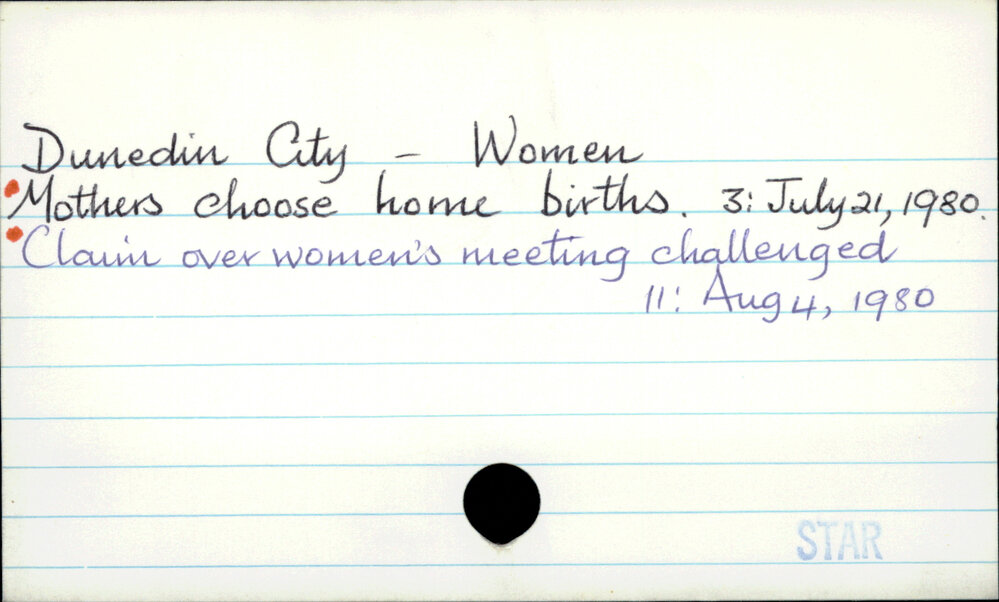 Dunedin City – Women
Mothers choose home births. 3: July 21, 1980.
Claim over women's meeting challenged
11: Aug 4, 1980
STAR